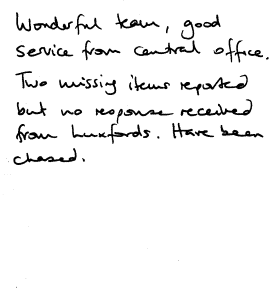 Wonderful team, good
service from central office.
Two missing items reported
but no response received
from Luxfords. Have been
chased.